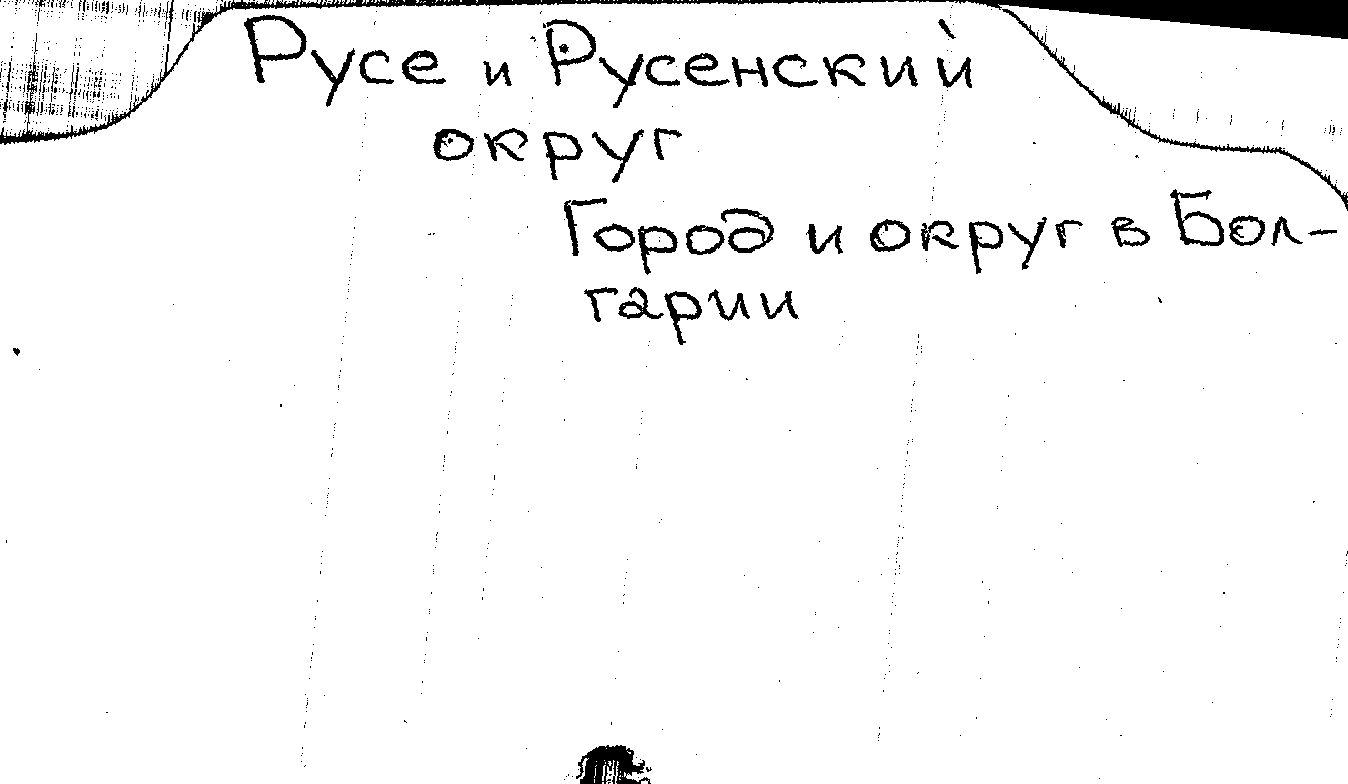 Русе и Русенский
округ
Город и округ в Бол-
гарии